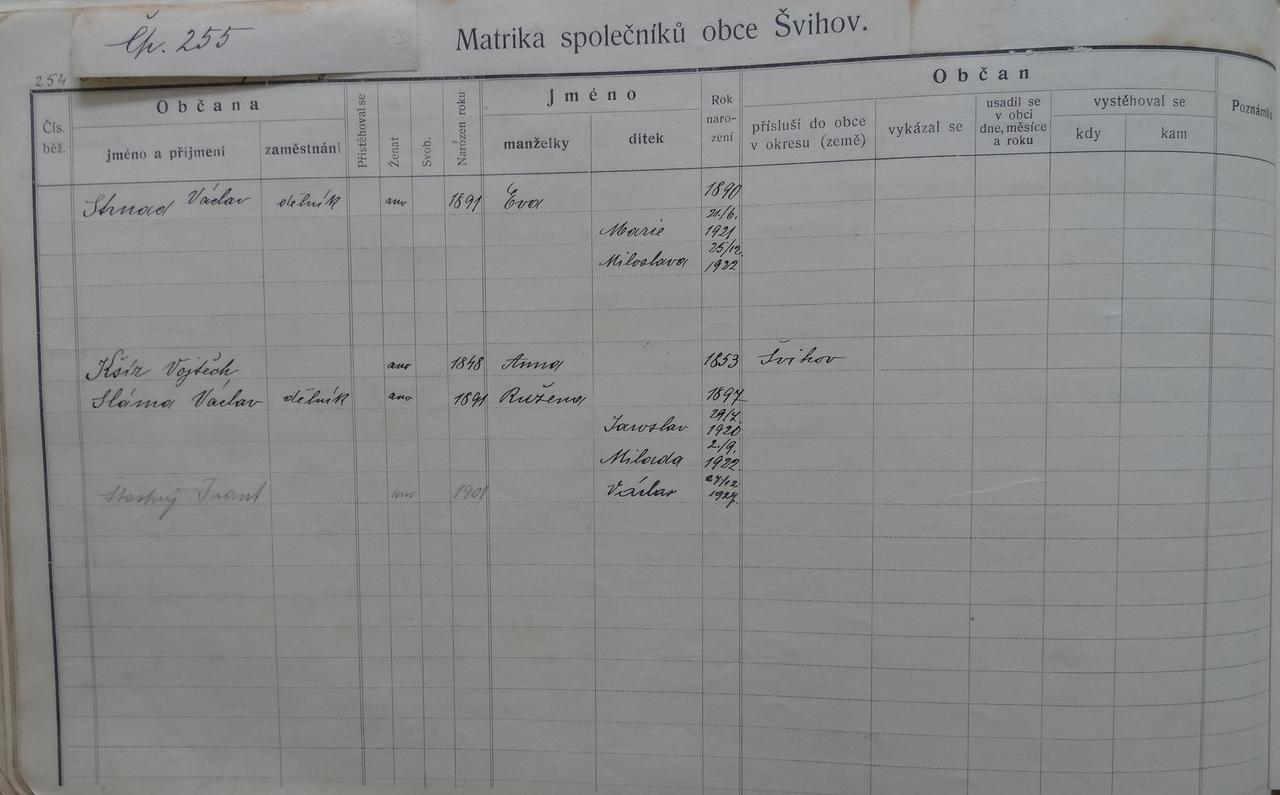 Čp. 255
Matrika společníků obce Švihov.
254
Čís. běž.
Občana
jméno a příjmení
zaměstnání
Přistěhoval se
Ženat
Svob.
Narozen roku
Jméno
manželky
dítek
Rok naro- zení
Občan
přísluší do obce v okresu (země)
vykázal se
usadil se v obci dne, měsíce a roku
vystěhoval se
kdy
kam
Poznámka
Strnad Václav dělník ano 1891 Eva 1890
21/6.
Marie 1921
25/12.
Miloslava 1922
Kšír Vojtěch ano 1848 Anna 1853 Švihov
Sláma Václav dělník ano 1891 Růžena 1897
29/7.
Jaroslav 1920
2./9.
Milada 1922.
27/12.
Stastný Frant ano 1901 Václav 1927.